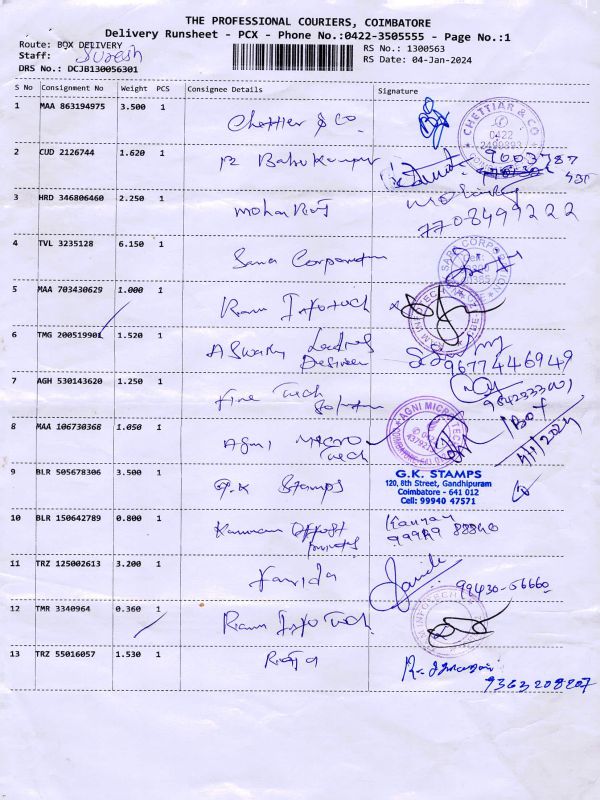 THE PROFESSIONAL COURIERS, COIMBATORE
Delivery Runsheet - PCX - Phone No.:0422-3505555 - Page No.:1
Route: BOX DELIVERY
RS No.: 1300563
Staff: Suresh
RS Date: 04-Jan-2024
DRS No.: DCJB130056301
S No Consignment No Weight PCS Consignee Details Signature
1 MAA 863194975 3.500 1 Chettier & Co. CHETTIAR & CO 0422
2 CUD 2126744 1.620 1 Babu 9003787
3 HRD 346806460 2.250 1 Mohan Raj 7708499222
4 TVL 3235128 6.150 1 Sara Corporation SARA CORPOR
5 MAA 703430629 1.000 1 Ram Infotech
6 TMG 200519901 1.520 1 Aswary Leading Designer 9677446949
7 AGH 530143620 1.250 1 Fine Tech Solution
1 BOX
8 MAA 106730368 1.050 1 Agni Micro Tech AGNI MICRO TECH 4/1/2024
9 BLR 505678306 3.500 1 G.K Stamps G.K. STAMPS
120, 8th Street, Gandhipuram
Coimbatore - 641 012
Cell: 99940 47571
10 BLR 150642789 0.800 1 Kannan Offset Printers Kannan
11 TRZ 125002613 3.200 1 Farida 99430-56660
12 TMR 3340964 0.360 1 Ram Info Tech INFOTECH
13 TRZ 55016057 1.530 1 Raja 9363208207